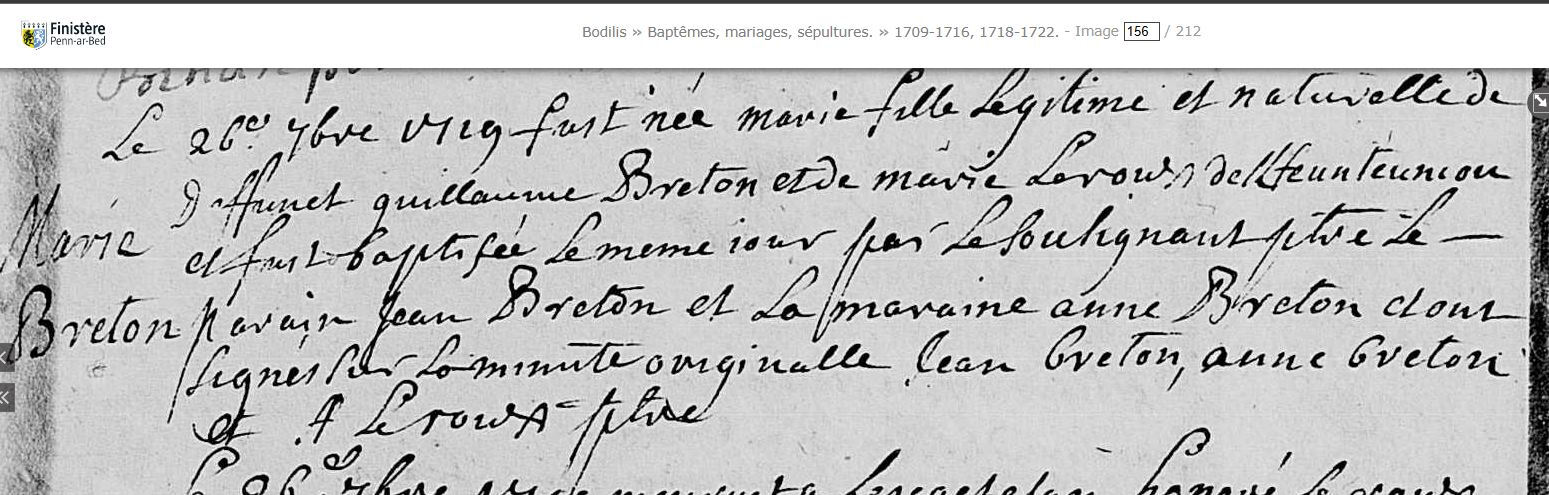 Finistère
Penn-ar-Bed
Bodilis » Baptêmes, mariages, sépultures. » 1709-1716, 1718-1722. - Image 156 / 212
Le 26e 7bre 1719 fust née marie fille Legitime et naturelle de
Marie
deffunct guillaume Breton et de marie Lerouxs de
et fust baptisée Le meme iour par Le soulignant ptre Le —
Breton
parain Jean Breton et La maraine anne Breton et ont
signes sur La minutte originalle Jean breton, anne breton
et A Leroux ptre
Le 26e 7bre